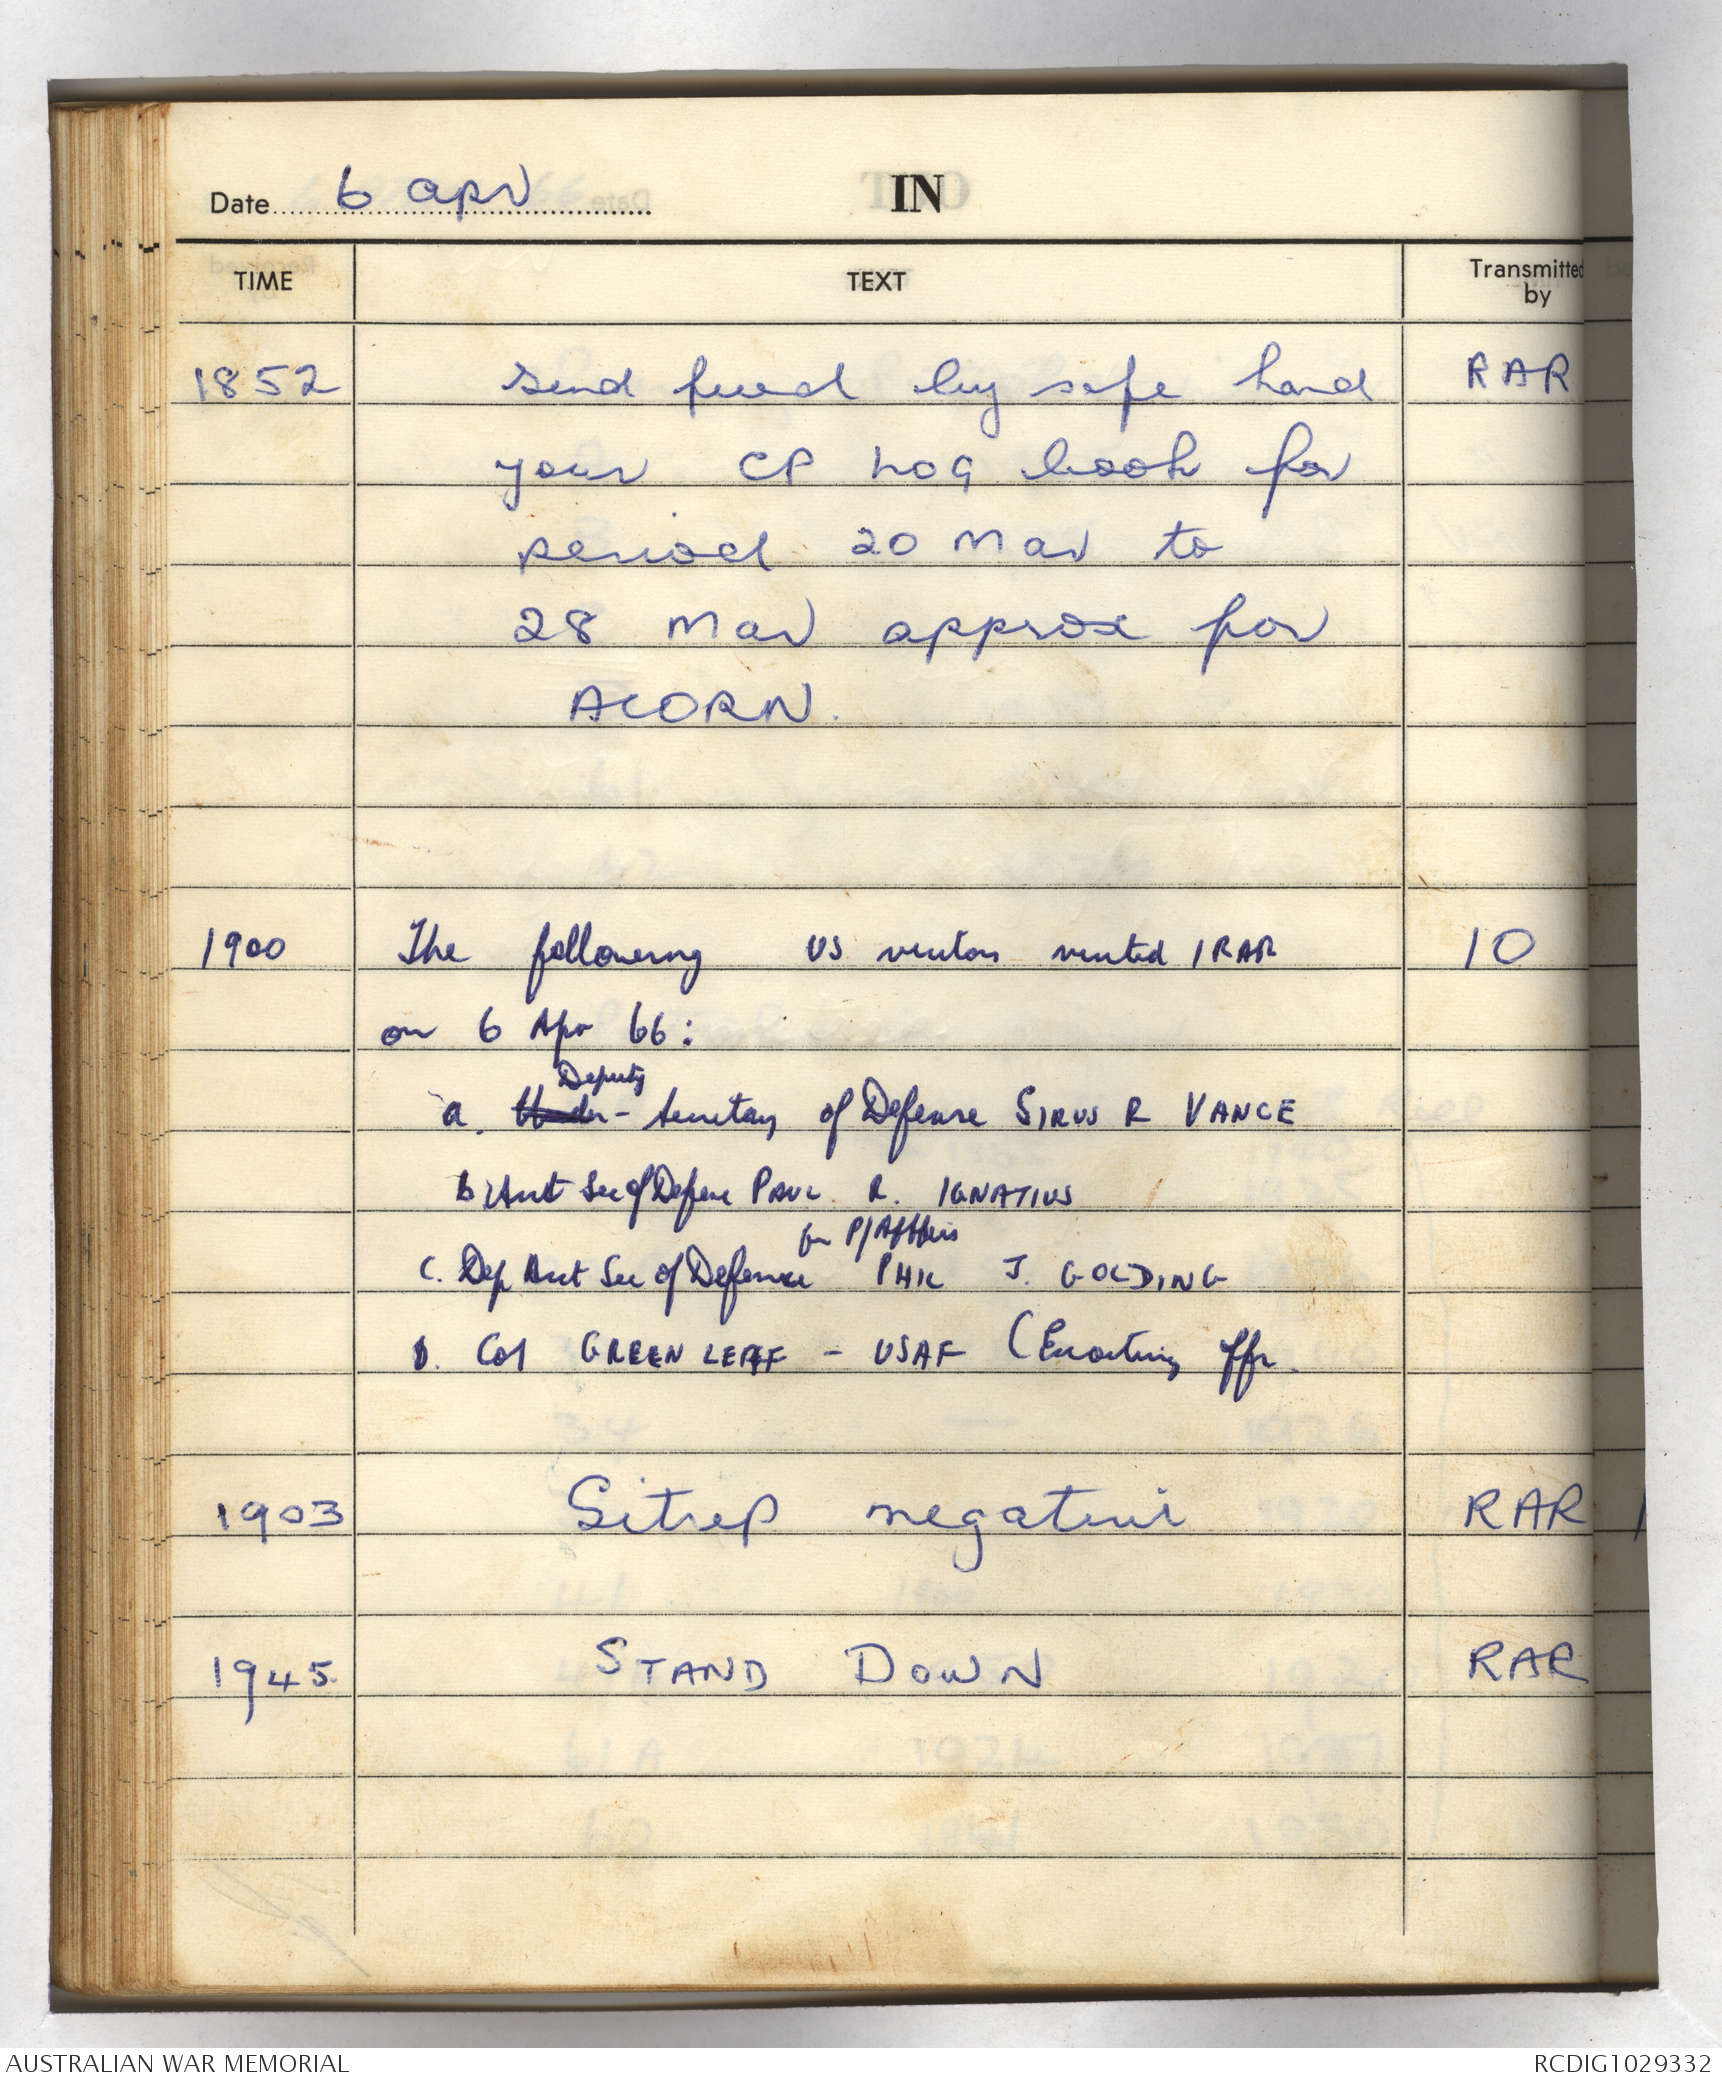 Date 6 apr
IN
TIME TEXT Transmitted by
1852 send fwd by safe hand RAR
your CP LOG book for
period 20 Mar to
28 Mar approx for
ACORN.
1900 The following US visitors visited 1RAR IO
on 6 Apr 66:
a. Under Deputy - Secretary of Defense SIRUS R VANCE
b. Asst Sec of Defense PAUL R. IGNATIUS
c. Dep Asst Sec of Defense for P/Affairs PHIL J. GOLDING
D. Col GREENLEAF - USAF (Escorting Offr.
1903 Sitrep negative RAR
1945. STAND DOWN RAR
AUSTRALIAN WAR MEMORIAL
RCDIG1029332